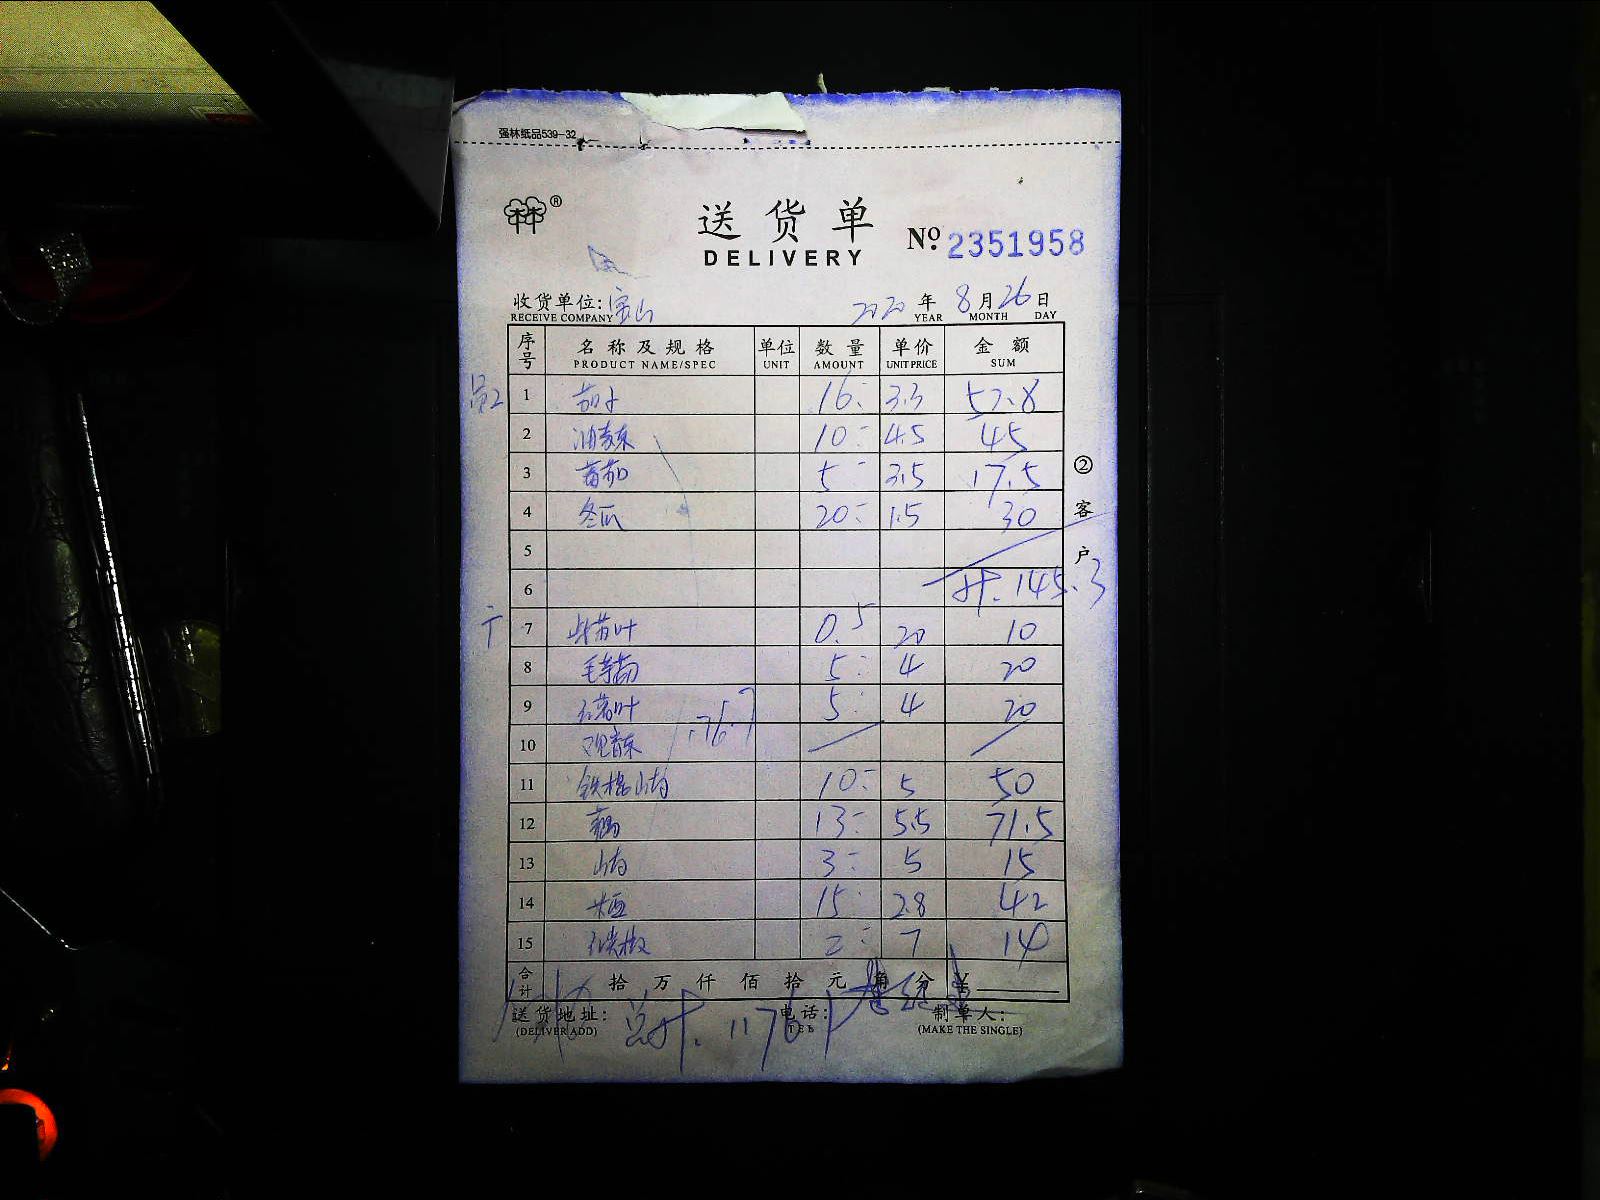 强林纸品539-32
林林®
送货单
DELIVERY
№ 2351958
收货单位: 宝山 2020年8月26日
RECEIVE COMPANY YEAR MONTH DAY
序号 名称及规格 单位 数量 单价 金额
PRODUCT NAME/SPEC UNIT AMOUNT UNIT PRICE SUM
员工 1 茄子 16- 3.3 52.8
2 油麦菜 10- 4.5 45
3 蕃茄 5- 3.5 17.5
4 冬瓜 20- 1.5 30
5
6 计. 145.3
7 叶 0.5 20 10
8 毛芋艿 5- 4 20
9 叶 5- 4 20
10
11 铁棍山药 10- 5 50
12 13- 5.5 71.5
13 山药 3- 5 15
14 15- 2.8 42
15 红尖椒 2- 7 14
合计 拾万仟佰拾元角分 ¥
送货地址: 电话: 制单人:
(DELIVER ADD) TEL (MAKE THE SINGLE)
总计.
②客户